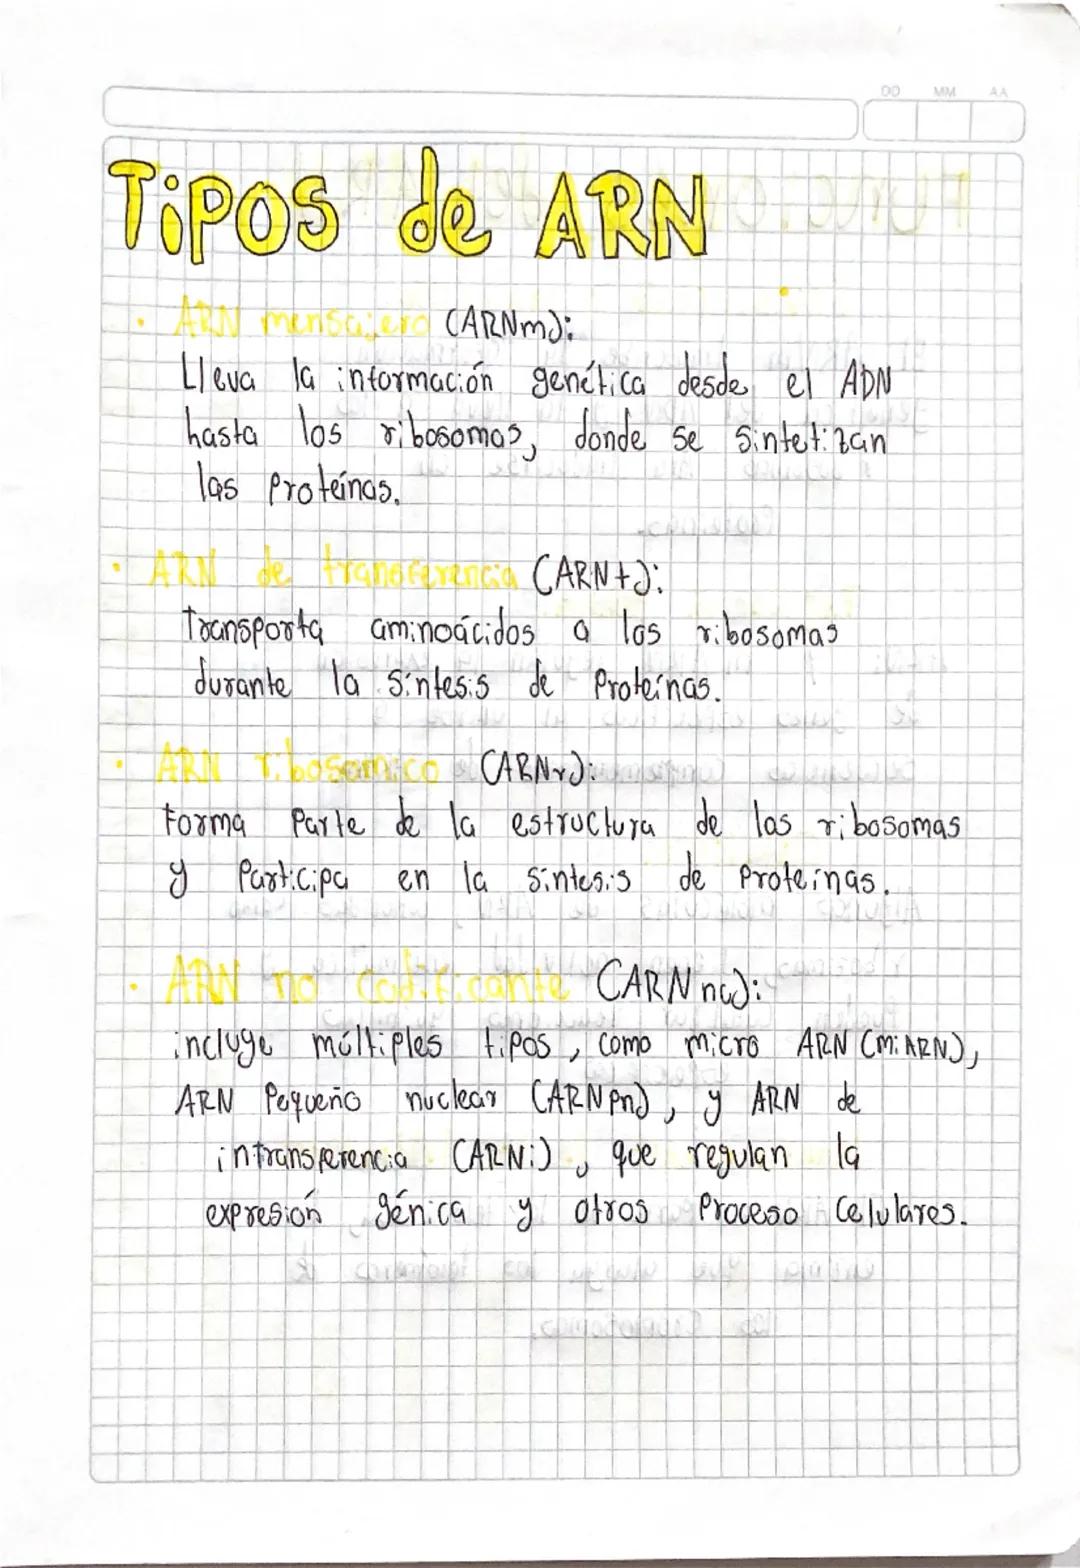 DD MM AA
TiPOS de ARN
• ARN mensajero (ARNm):
Lleva la información genética desde el ADN
hasta los ribosomas, donde se sintetizan
las Proteínas.
• ARN de transferencia (ARNt):
Transporta aminoácidos a los ribosomas
durante la síntesis de Proteínas.
• ARN ribosomico (ARNr):
forma Parte de la estructura de los ribosomas
y Participa en la síntesis de Proteínas.
• ARN no codificante (ARN nc):
incluye múltiples tipos, como micro ARN (miARN),
ARN Pequeño nuclear (ARN Pn), y ARN de
intransferencia (ARNi), que regulan la
expresión génica y otros Proceso Celulares.